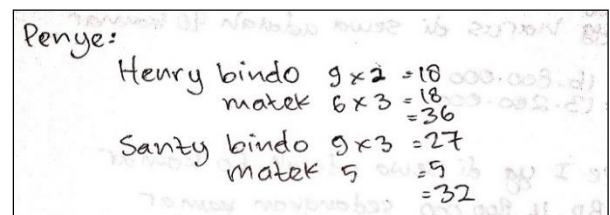 Penye:
Henry bindo 9 x 2 = 18
matek 6 x 3 = 18
= 36
Santy bindo 9 x 3 = 27
matek 5 = 5
= 32